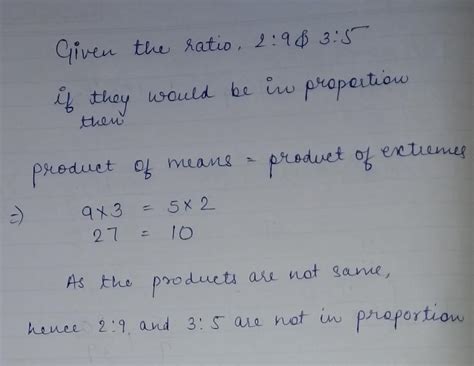 Given the ratio, 2:9 & 3:5
if they would be in proportion
then
product of means = product of extremes
=> 9×3 = 5×2
27 = 10
As the products are not same,
hence 2:9 and 3:5 are not in proportion